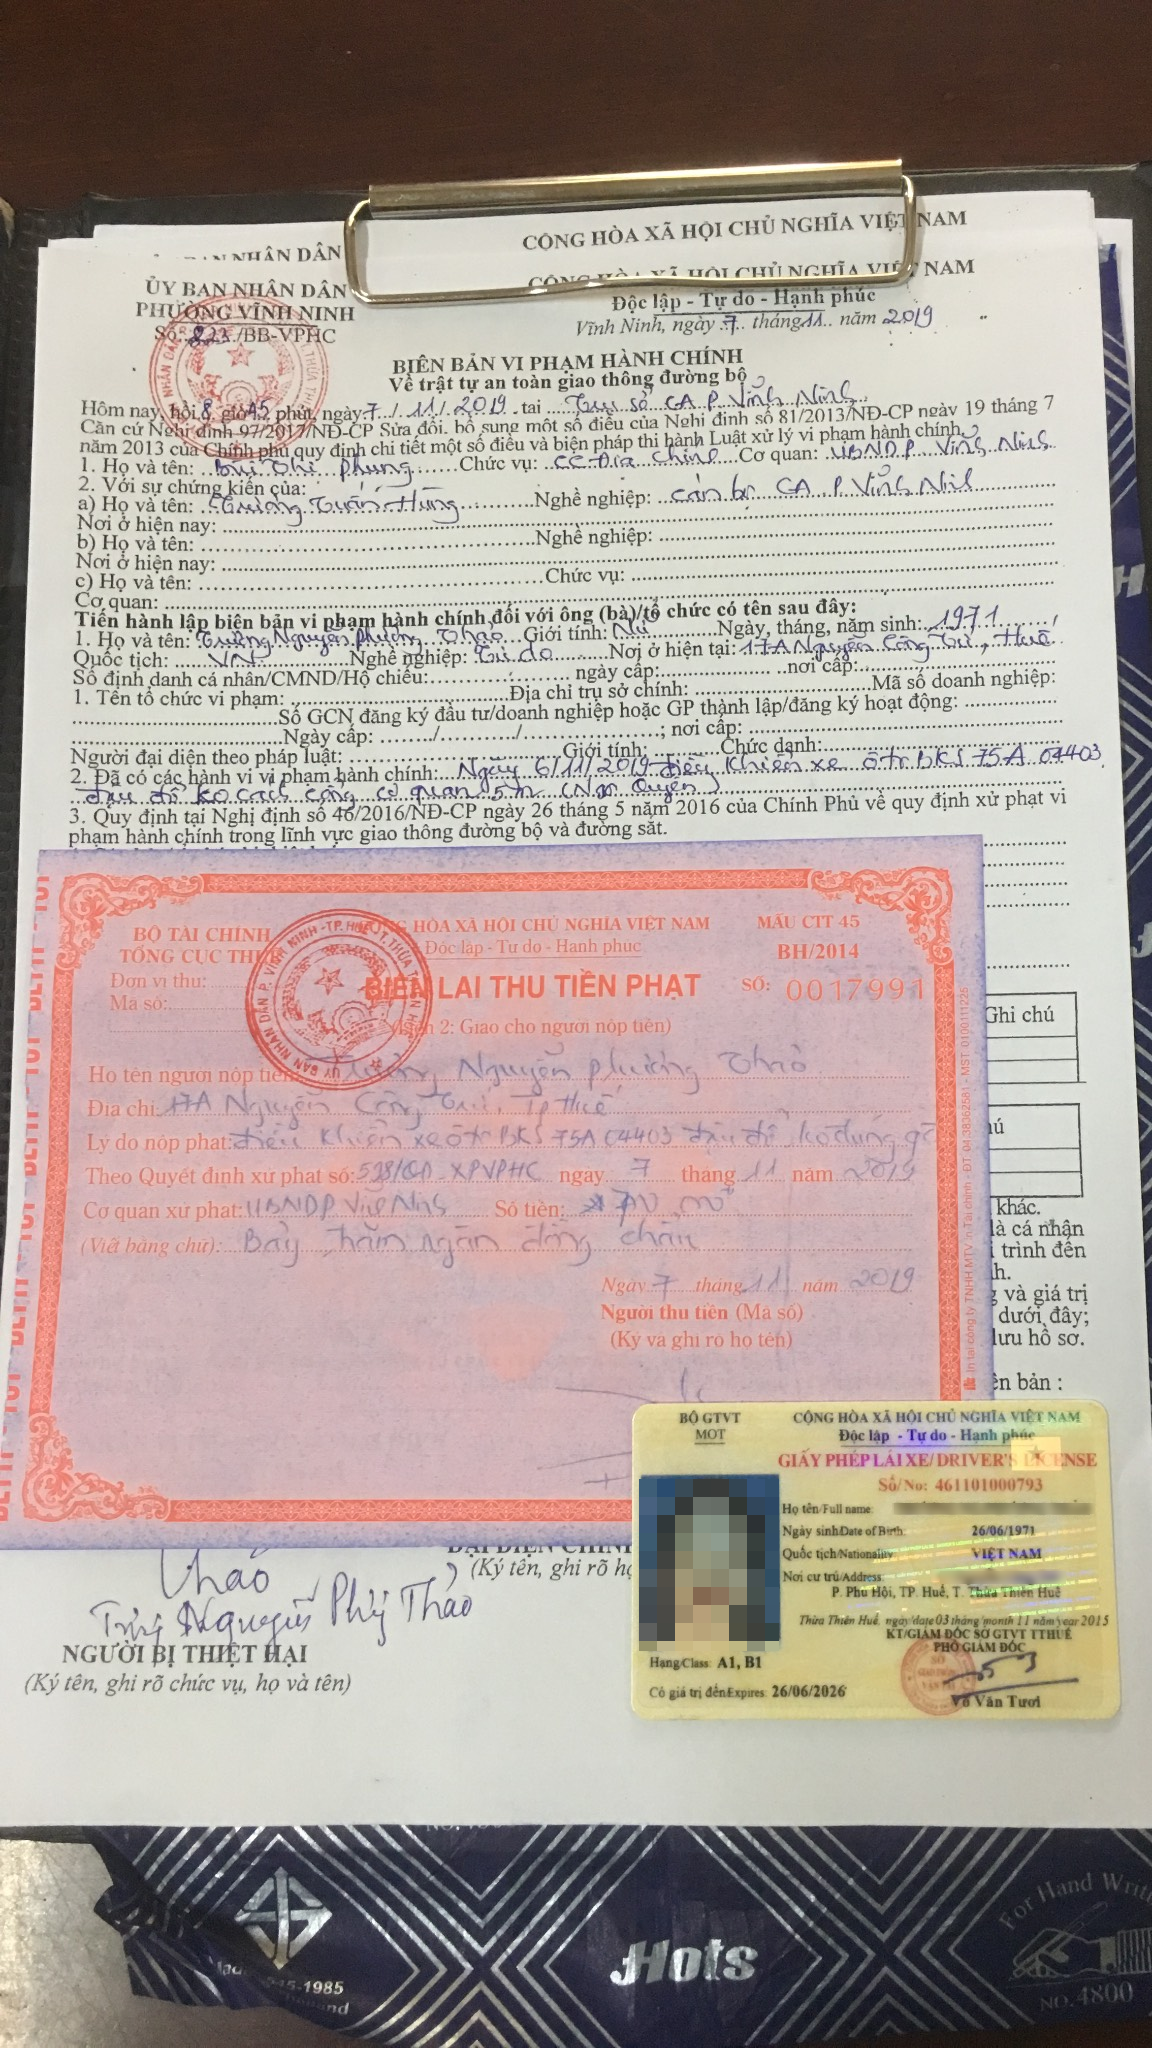 CỘNG HÒA XÃ HỘI CHỦ NGHĨA VIỆT NAM
NHÂN DÂN
CỘNG HÒA XÃ HỘI CHỦ NGHĨA VIỆT NAM
ỦY BAN NHÂN DÂN
PHƯỜNG VĨNH NINH
Độc lập - Tự do - Hạnh phúc
Số: 822 /BB-VPHC
Vĩnh Ninh, ngày 7 tháng 11 năm 2019
BIÊN BẢN VI PHẠM HÀNH CHÍNH
Về trật tự an toàn giao thông đường bộ
Hôm nay, hồi 8 giờ 45 phút, ngày 7 / 11 / 2019 tại Trụ sở CA P. Vĩnh Ninh
Căn cứ Nghị định 97/2017/NĐ-CP Sửa đổi, bổ sung một số điều của Nghị định số 81/2013/NĐ-CP ngày 19 tháng 7
năm 2013 của Chính phủ quy định chi tiết một số điều và biện pháp thi hành Luật xử lý vi phạm hành chính.
1. Họ và tên: Bùi Thị Phụng Chức vụ: CC Địa Chính Cơ quan: UBNDP Vĩnh Ninh
2. Với sự chứng kiến của:
a) Họ và tên: Trương Tuấn Hùng Nghề nghiệp: cán bộ CA P Vĩnh Ninh
Nơi ở hiện nay:
b) Họ và tên: Nghề nghiệp:
Nơi ở hiện nay:
c) Họ và tên: Chức vụ:
Cơ quan:
Tiến hành lập biên bản vi phạm hành chính đối với ông (bà)/tổ chức có tên sau đây:
1. Họ và tên: Trương Nguyễn Phương Thảo Giới tính: Nữ Ngày, tháng, năm sinh: 1971
Quốc tịch: VN Nghề nghiệp: Tự do Nơi ở hiện tại: 17A Nguyễn Công Trứ, Huế
Số định danh cá nhân/CMND/Hộ chiếu: ngày cấp: nơi cấp:
1. Tên tổ chức vi phạm: Địa chỉ trụ sở chính: Mã số doanh nghiệp:
Số GCN đăng ký đầu tư/doanh nghiệp hoặc GP thành lập/đăng ký hoạt động:
Ngày cấp: / / ; nơi cấp:
Người đại diện theo pháp luật: Giới tính: Chức danh:
2. Đã có các hành vi vi phạm hành chính: Ngày 6/11/2019 điều khiển xe ôtô BKS 75A 04403
đậu đỗ ko cách cổng cơ quan 5m (Ngô Quyền)
3. Quy định tại Nghị định số 46/2016/NĐ-CP ngày 26 tháng 5 năm 2016 của Chính Phủ về quy định xử phạt vi
phạm hành chính trong lĩnh vực giao thông đường bộ và đường sắt.
BỘ TÀI CHÍNH
TỔNG CỤC THUẾ
CỘNG HÒA XÃ HỘI CHỦ NGHĨA VIỆT NAM
Độc lập - Tự do - Hạnh phúc
MẪU CTT 45
BH/2014
Đơn vị thu:
Mã số:
BIÊN LAI THU TIỀN PHẠT
SỐ: 0017991
(Liên 2: Giao cho người nộp tiền)
Họ tên người nộp tiền: Trương Nguyễn Phương Thảo
Địa chỉ: 17A Nguyễn Công Trứ, Tp Huế
Lý do nộp phạt: điều khiển xe ôtô BKS 75A 04403 đậu đỗ ko đúng
Theo Quyết định xử phạt số: 538/QĐ-XPVPHC ngày 7 tháng 11 năm 2019
Cơ quan xử phạt: UBNDP Vĩnh Ninh Số tiền:
(Viết bằng chữ): Bảy trăm ngàn đồng chẵn
Ngày 7 tháng 11 năm 2019
Người thu tiền (Mã số)
(Ký và ghi rõ họ tên)
In tại công ty TNHH MTV in Tài chính - ĐT: 04.38362581 - MST: 0100111225
Ghi chú
hú
khác.
là cá nhân
trình đến
nh.
g và giá trị
dưới đây;
lưu hồ sơ.
ên bản :
ĐẠI DIỆN CHÍNH
(Ký tên, ghi rõ họ
Thảo
Trương Nguyễn Phương Thảo
NGƯỜI BỊ THIỆT HẠI
(Ký tên, ghi rõ chức vụ, họ và tên)
BỘ GTVT
MOT
CỘNG HÒA XÃ HỘI CHỦ NGHĨA VIỆT NAM
Độc lập - Tự do - Hạnh phúc
GIẤY PHÉP LÁI XE/DRIVER'S LICENSE
Số/No: 461101000793
Họ tên/Full name:
Ngày sinh/Date of Birth: 26/06/1971
Quốc tịch/Nationality VIỆT NAM
Nơi cư trú/Address:
P. Phú Hội, TP. Huế, T. Thừa Thiên Huế
Thừa Thiên Huế, ngày/date 03 tháng/month 11 năm/year 2015
KT/GIÁM ĐỐC SỞ GTVT TTHUẾ
PHÓ GIÁM ĐỐC
Hạng/Class: A1, B1
Có giá trị đến/Expires: 26/06/2026
Võ Văn Tươi
For Hand Writ
Hots
NO. 4800